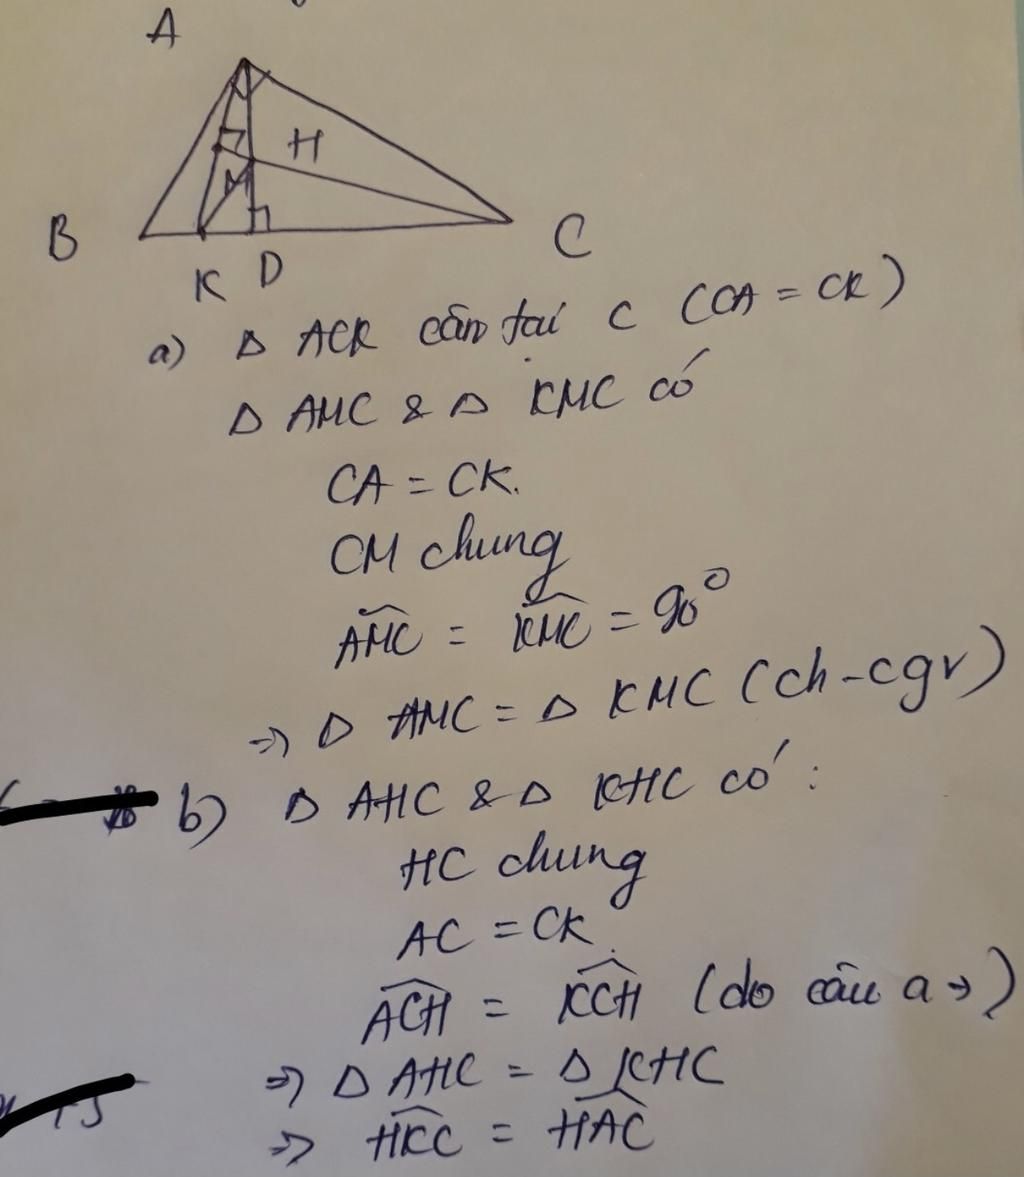 A
H
M
B
C
K D
a) Δ ACK cân tại C (CA = CK)
Δ AMC & Δ KMC có
CA = CK.
CM chung
\widehat{AMC} = \widehat{KMC} = 90°
=> Δ AMC = Δ KMC (ch-cgv)
b) Δ AHC & Δ KHC có :
HC chung
AC = CK
\widehat{ACH} = \widehat{KCH} (do câu a →)
=> Δ AHC = Δ KHC
=> \widehat{HKC} = \widehat{HAC}